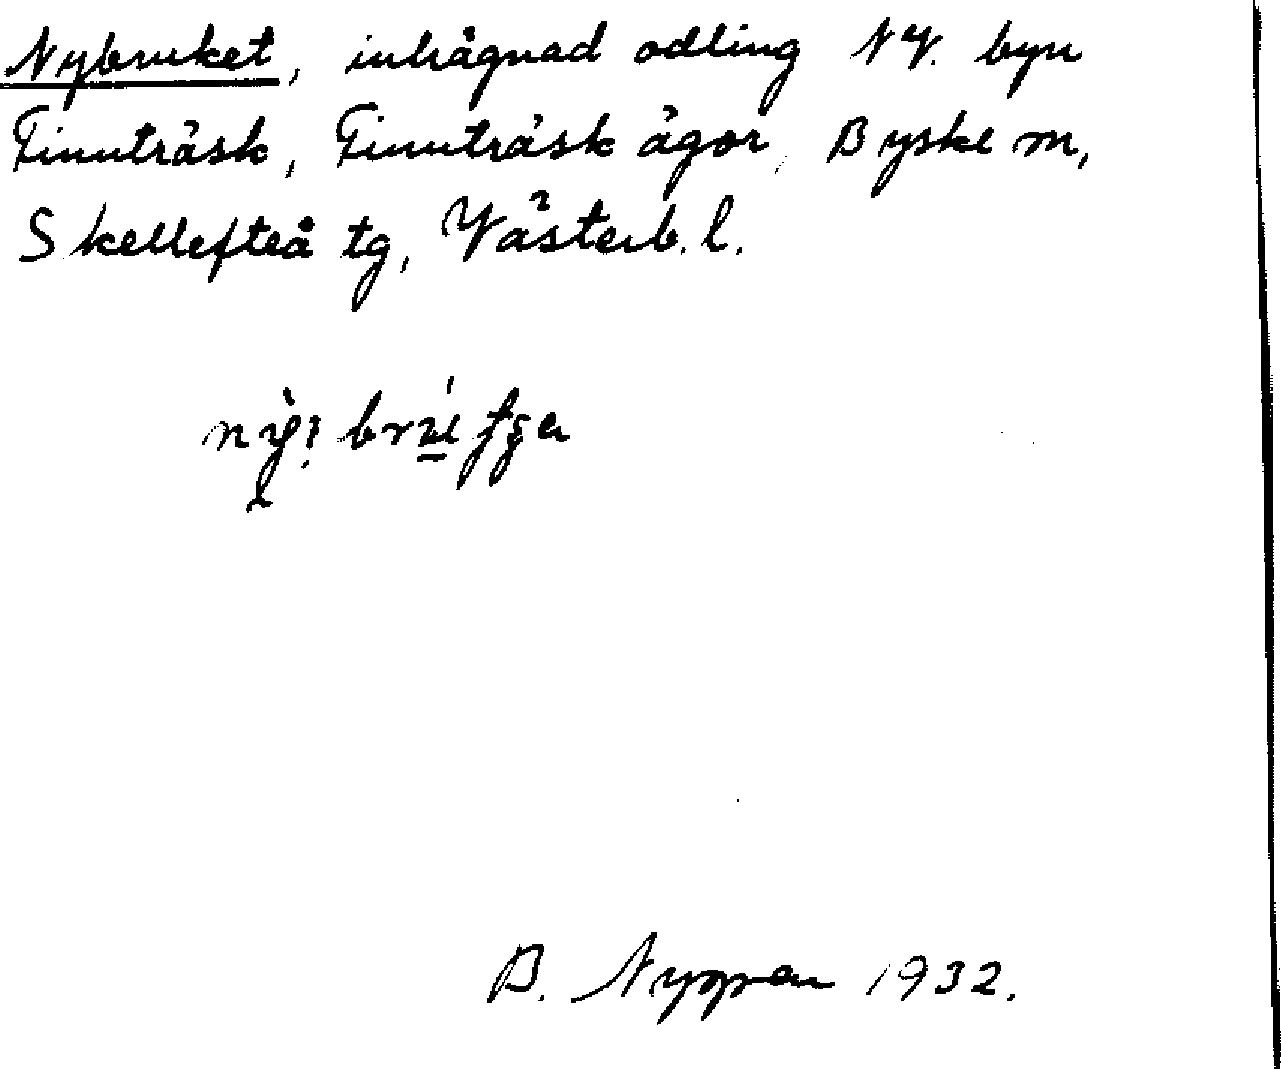 Nybruket, inhägnad odling NV. byn
Finnträsk, Finnträsk ägor, Byske sn,
Skellefteå tg, Västerb. l.
B. Nygren 1932.